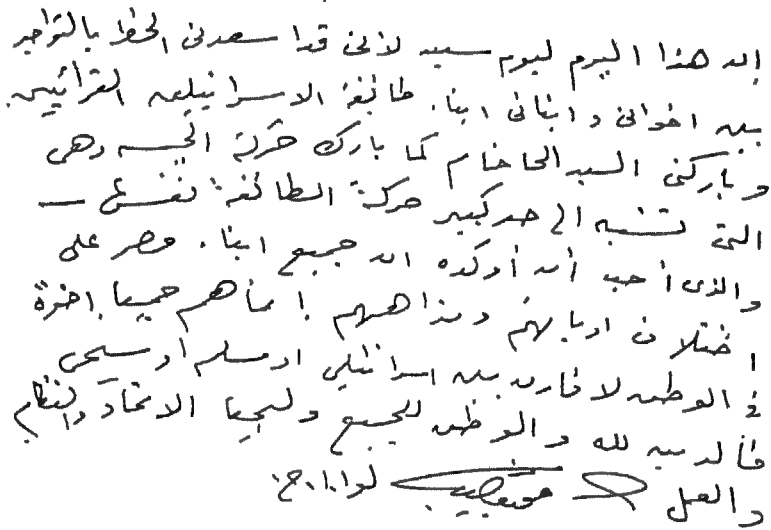 إن هذا اليوم ليوم سعيد لأنى قد أسعدنى الحظ بالتواجد
بين اخوانى وابنائى ابناء طائفة الاسرائيليين القرائيين
وباركنى السيد الحاخام كما بارك حركة الجيش وهى
التى تشبه الى حد كبير حركة الطائفة نفسها
والذى أحب أن أؤكده ان جميع ابناء مصر على
اختلاف اديانهم ومذاهبهم إنما هم جميعا إخوة
فى الوطن لا فارق بين اسرائيلى او مسلم أو مسيحى
فالدين لله والوطن للجميع وليحيا الاتحاد والنظام
والعمل محمد نجيب لواء أ.ح.